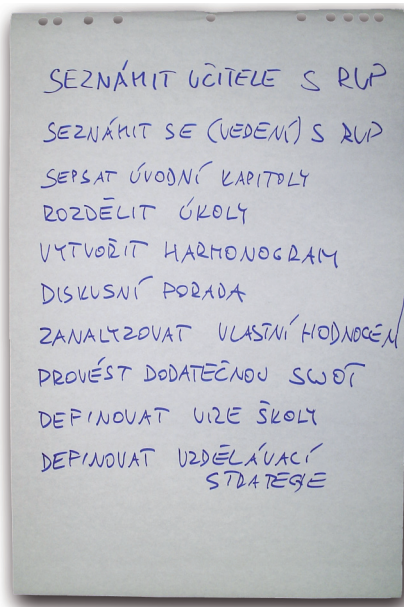 SEZNÁMIT UČITELE S RVP
SEZNÁMIT SE (VEDENÍ) S RVP
SEPSAT ÚVODNÍ KAPITOLY
ROZDĚLIT ÚKOLY
VYTVOŘIT HARMONOGRAM
DISKUSNÍ PORADA
ZANALYZOVAT VLASTNÍ HODNOCENÍ
PROVÉST DODATEČNOU SWOT
DEFINOVAT VIZE ŠKOLY
DEFINOVAT VZDĚLÁVACÍ
STRATEGIE